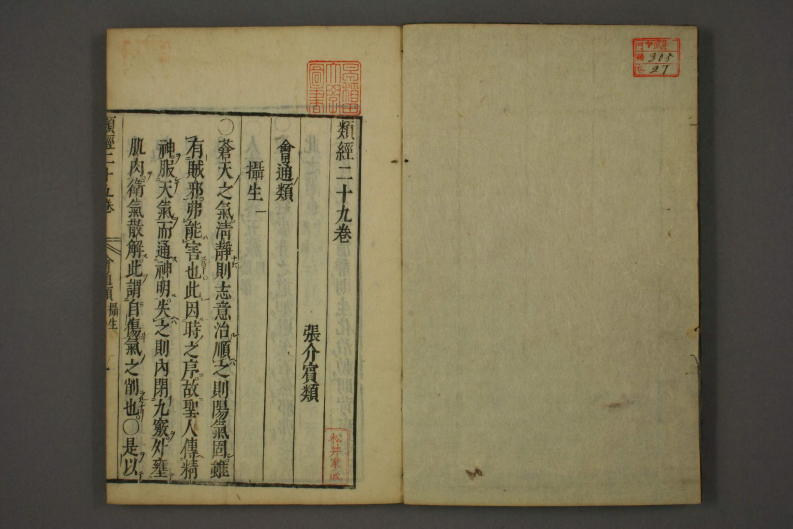 類經二十九卷
張介賓類
會通類
攝生一
○蒼天之氣清靜則志意治順之則陽氣固雖
有賊邪弗能害也此因時之序故聖人傳精
神服天氣而通神明失之則內閉九竅外壅
肌肉衛氣散解此謂自傷氣之削也○是以
類經二十九卷
會通類
攝生
松井家藏
305
27